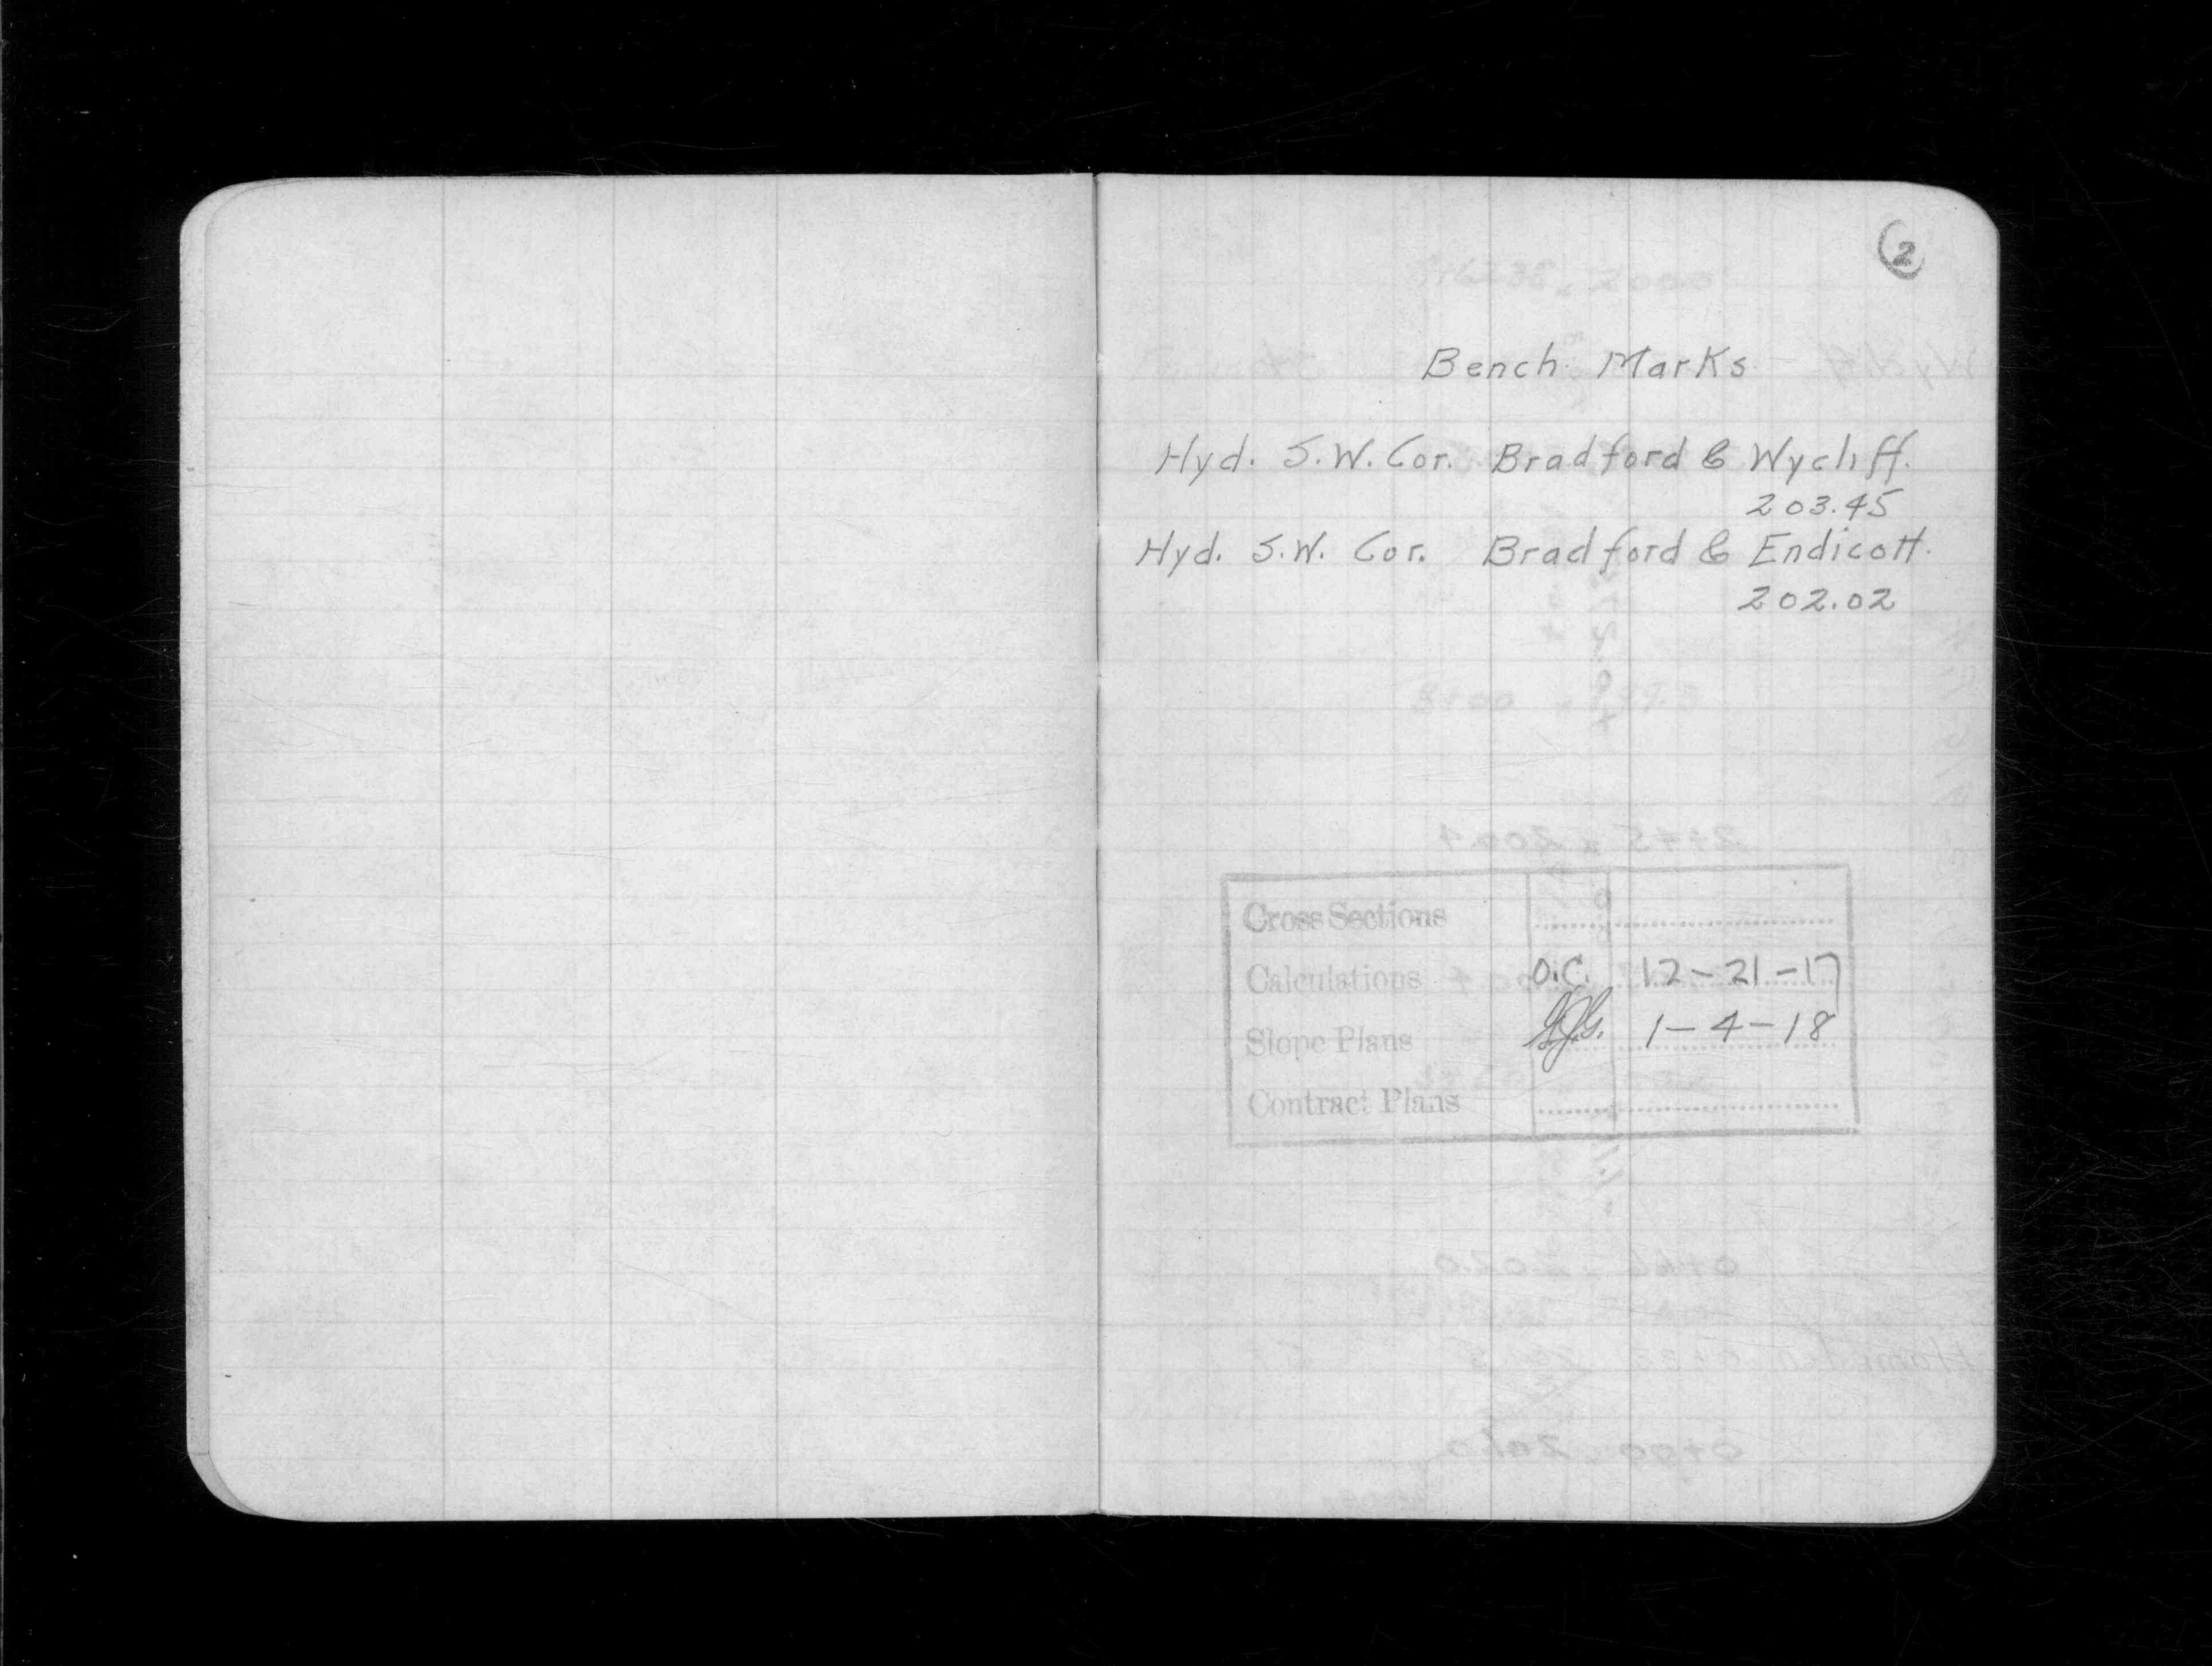 2
Bench Marks
Hyd. S.W. Cor. Bradford & Wycliff.
203.45
Hyd. S.W. Cor. Bradford & Endicott.
202.02
Cross Sections
Calculations O.C. 12-21-17
Slope Plans 1-4-18
Contract Plans